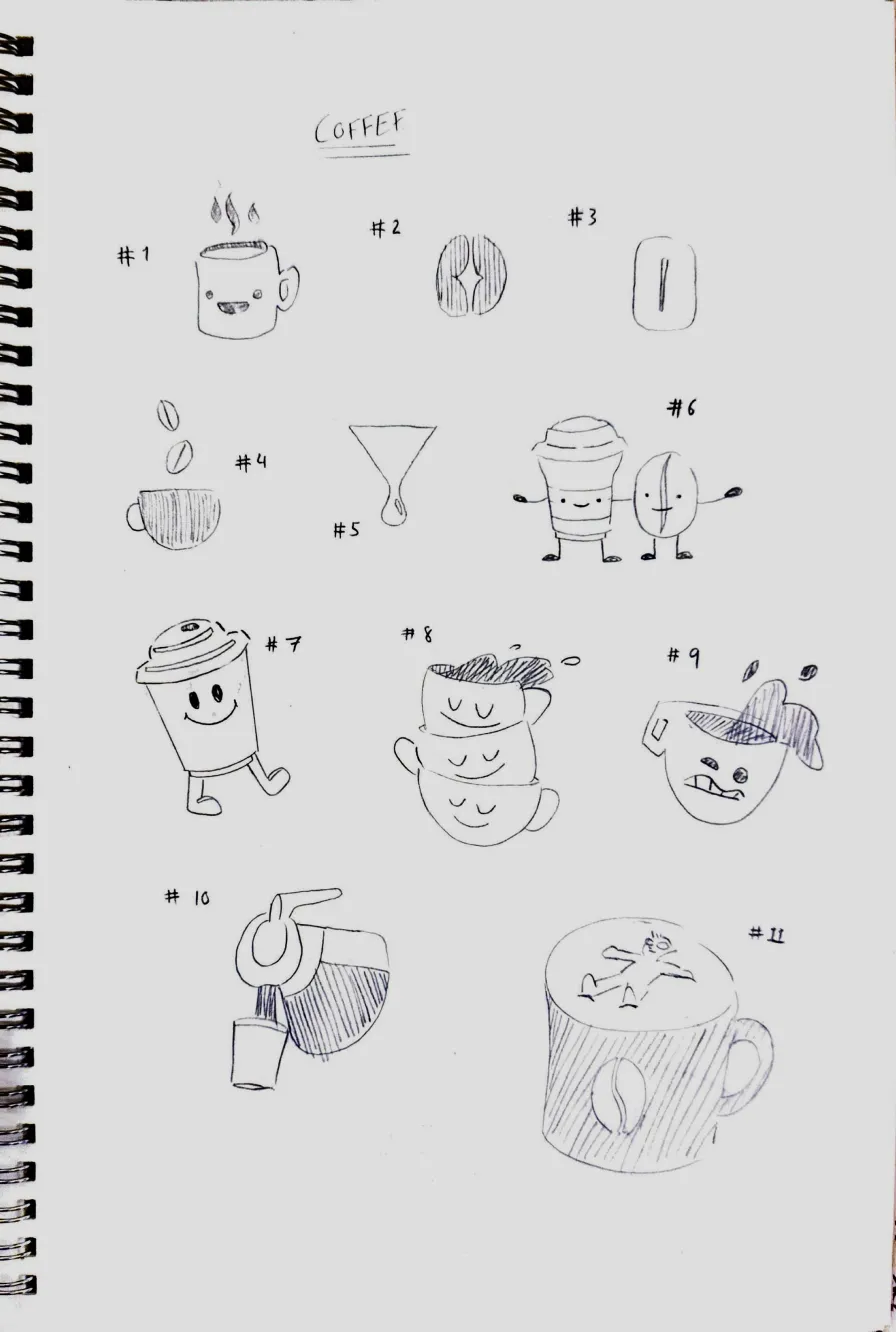 COFFEE
#1
#2
#3
#4
#5
#6
#7
#8
#9
# 10
#11